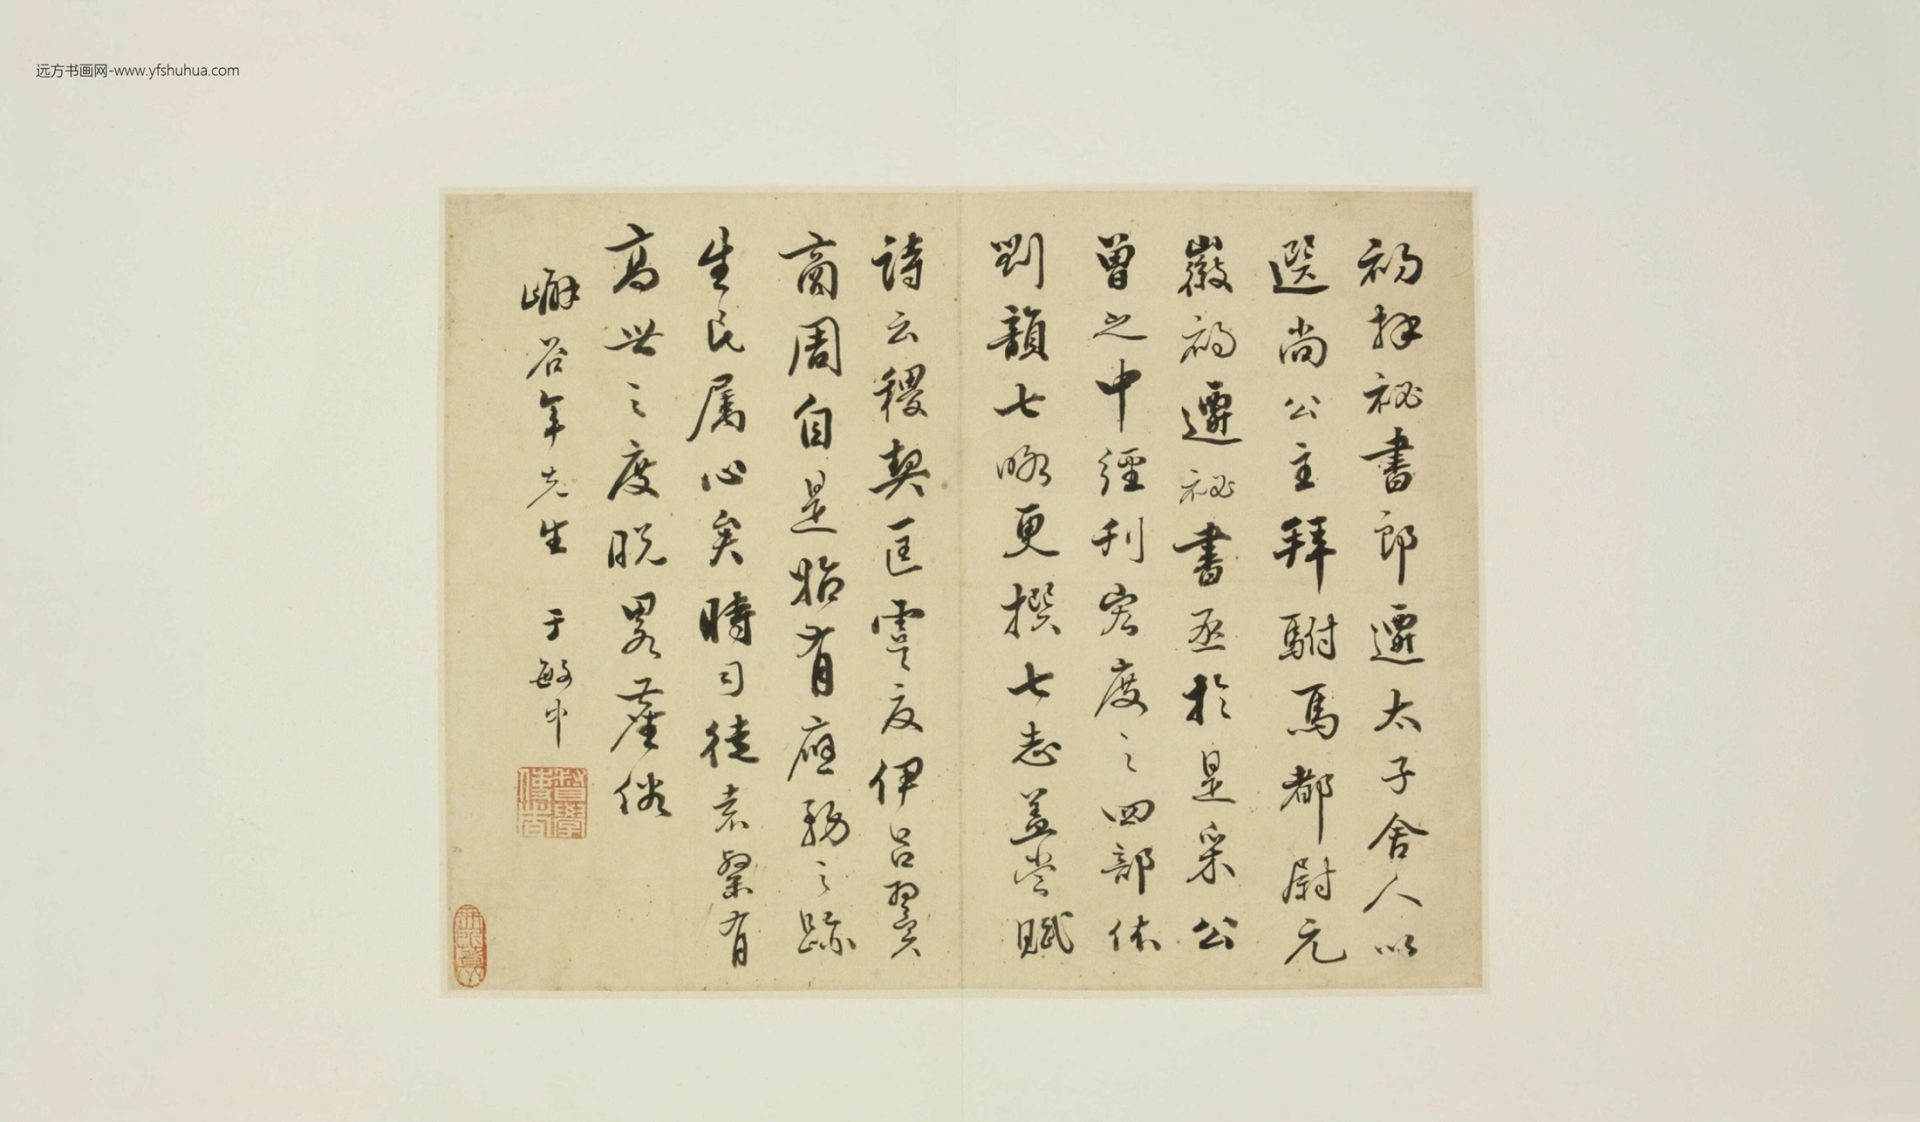 初拜祕書郎遷太子舍人以
選尚公主拜駙馬都尉元
徽初遷祕書丞於是采公
曾之中經刊宏度之四部依
劉韻七略更撰七志蓋嘗賦
詩云稷契匡虞夏伊呂翼
商周自是始有應務之跡
生民属心矣時司徒袁粲有
高世之度脱畧塵俗
嶰谷年先生 于敏中
远方书画网-www.yfshuhua.com